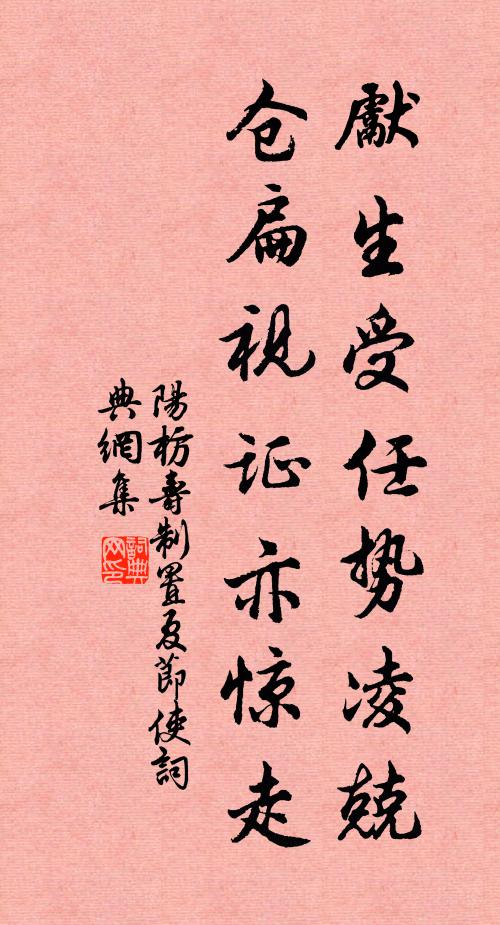 獻生受任势凌兢
仓扁视证亦惊走
陽枋壽制置夏節使詞
典網集
詞典网印